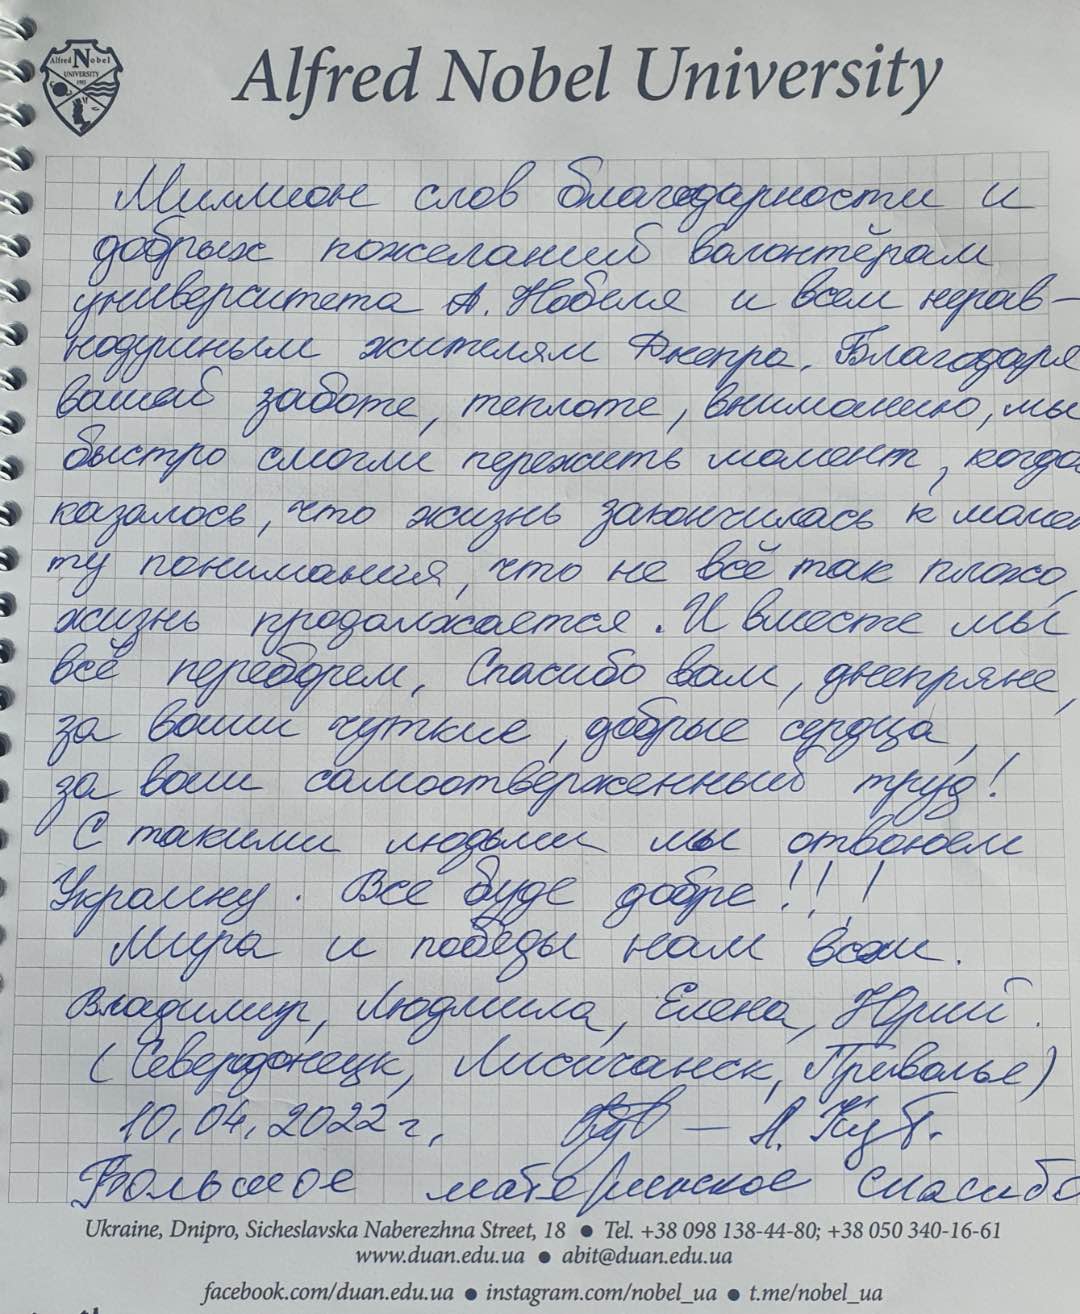 Alfred Nobel
UNIVERSITY
Alfred Nobel University
Миллион слов благодарности и
добрых пожеланий волонтёрам
университета А. Нобеля и всем нерав-
нодушным жителям Днепра. Благодаря
вашей заботе, теплоте, вниманию, мы
быстро смогли пережить момент, когда
казалось, что жизнь закончилась к момен
ту понимания, что не всё так плохо,
жизнь продолжается. И вместе мы
всё переборем. Спасибо вам, днепряне,
за ваши чуткие, добрые сердца,
за ваш самоотверженный труд!
С такими людьми мы отвоюем
Украину. Все буде добре!!!
Мира и победы нам всем.
Владимир, Людмила, Елена, Юрий.
(Северодонецк, Лисичанск, Приволье)
10.04.2022 г.
Большое материнское спасибо
Ukraine, Dnipro, Sicheslavska Naberezhna Street, 18 ● Tel. +38 098 138-44-80; +38 050 340-16-61
www.duan.edu.ua ● abit@duan.edu.ua
facebook.com/duan.edu.ua ● instagram.com/nobel_ua ● t.me/nobel_ua